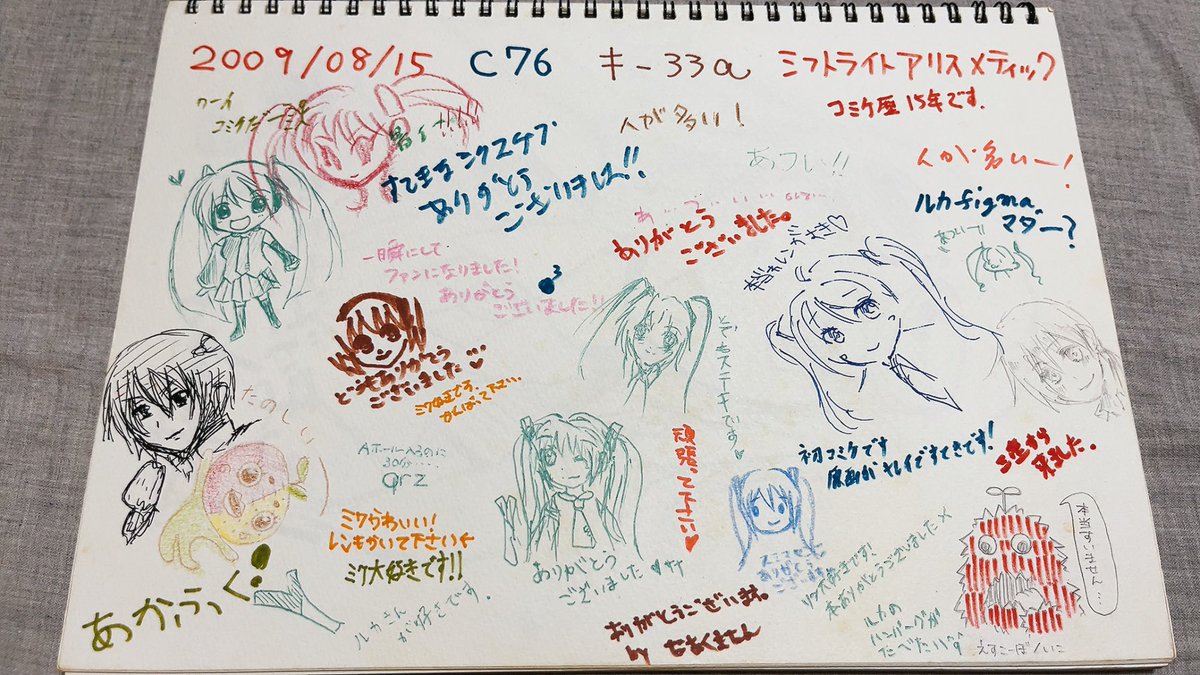 2009/08/15 C76 キ-33a ミフトライトアリスメティック
コミケ歴15年です。
人が多い！
あつい!!
人が多いー！
すてきなシクスケブ
ありがとう
ございました!!
ルカfigma
マダー？
あついー!!
ありがとう
ございました。
一瞬にして
ファンになりました！
ありがとう
ございました!!
どうもありがとう
ございました
ミク好きです。
がんばって下さい。
とてもステキです♡
たのしい
30分…
qrz
ミクかわいい！
レンもかいて下さい
ミク大好きです!!
頑張って下さい♥
初コミケです
原画がキレイですてきです！
来ました。
本当すいません…
あかふく。
ルカさん
が好きです。
ありがとう
ございました
ありがとう
ありがとうございます。
by
ルカの
ハンバーグが
たべたいです
えすこーぽ